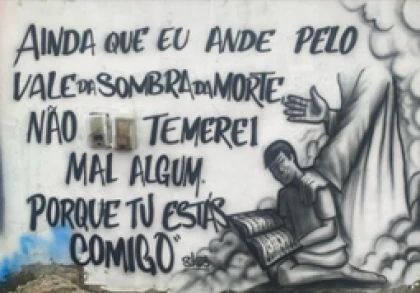 AINDA QUE EU ANDE PELO
VALE DA SOMBRA DA MORTE,
NÃO TEMEREI
MAL ALGUM.
PORQUE TU ESTÁS
COMIGO"